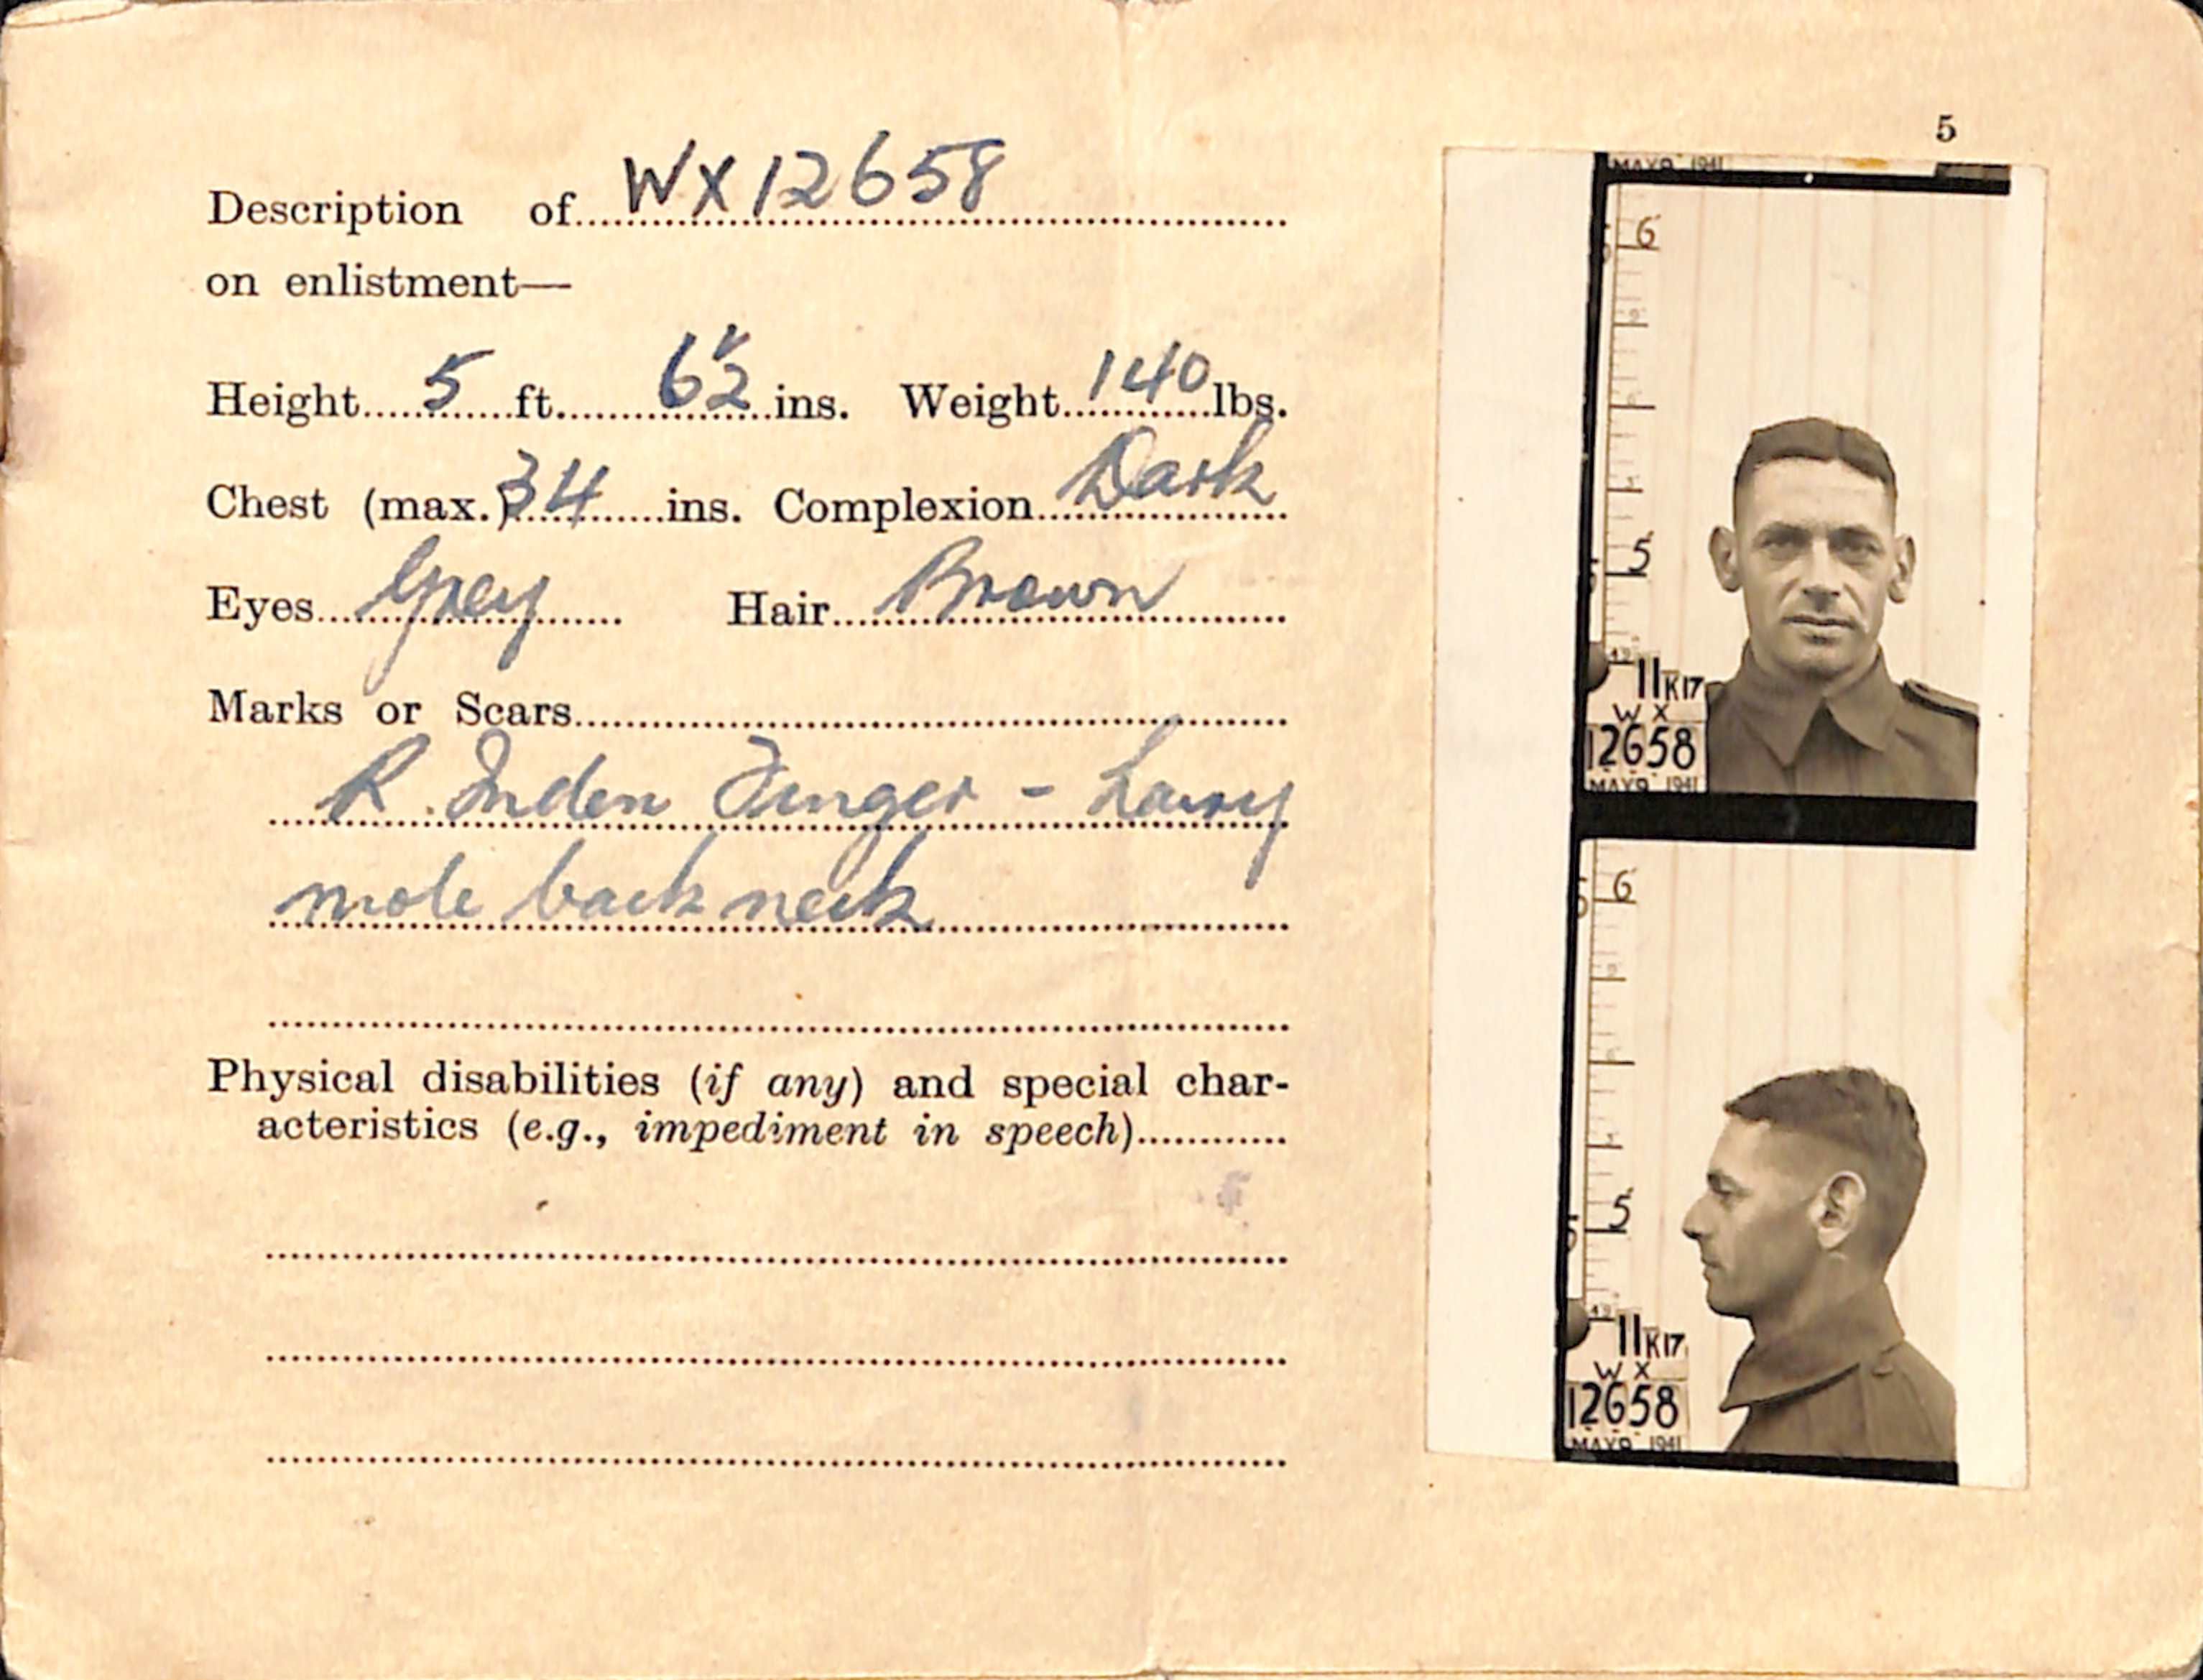 5
Description of WX12658
on enlistment—
Height 5 ft. 6½ ins. Weight 140 lbs.
Chest (max.) 34 ins. Complexion Dark
Eyes Grey Hair Brown
Marks or Scars
R. Inden Finger -
mole back neck
Physical disabilities (if any) and special char-
acteristics (e.g., impediment in speech)
MAY9 1941
6
5
11K17
WX
12658
MAY9 1941
6
5
11K17
WX
12658
MAY9 1941